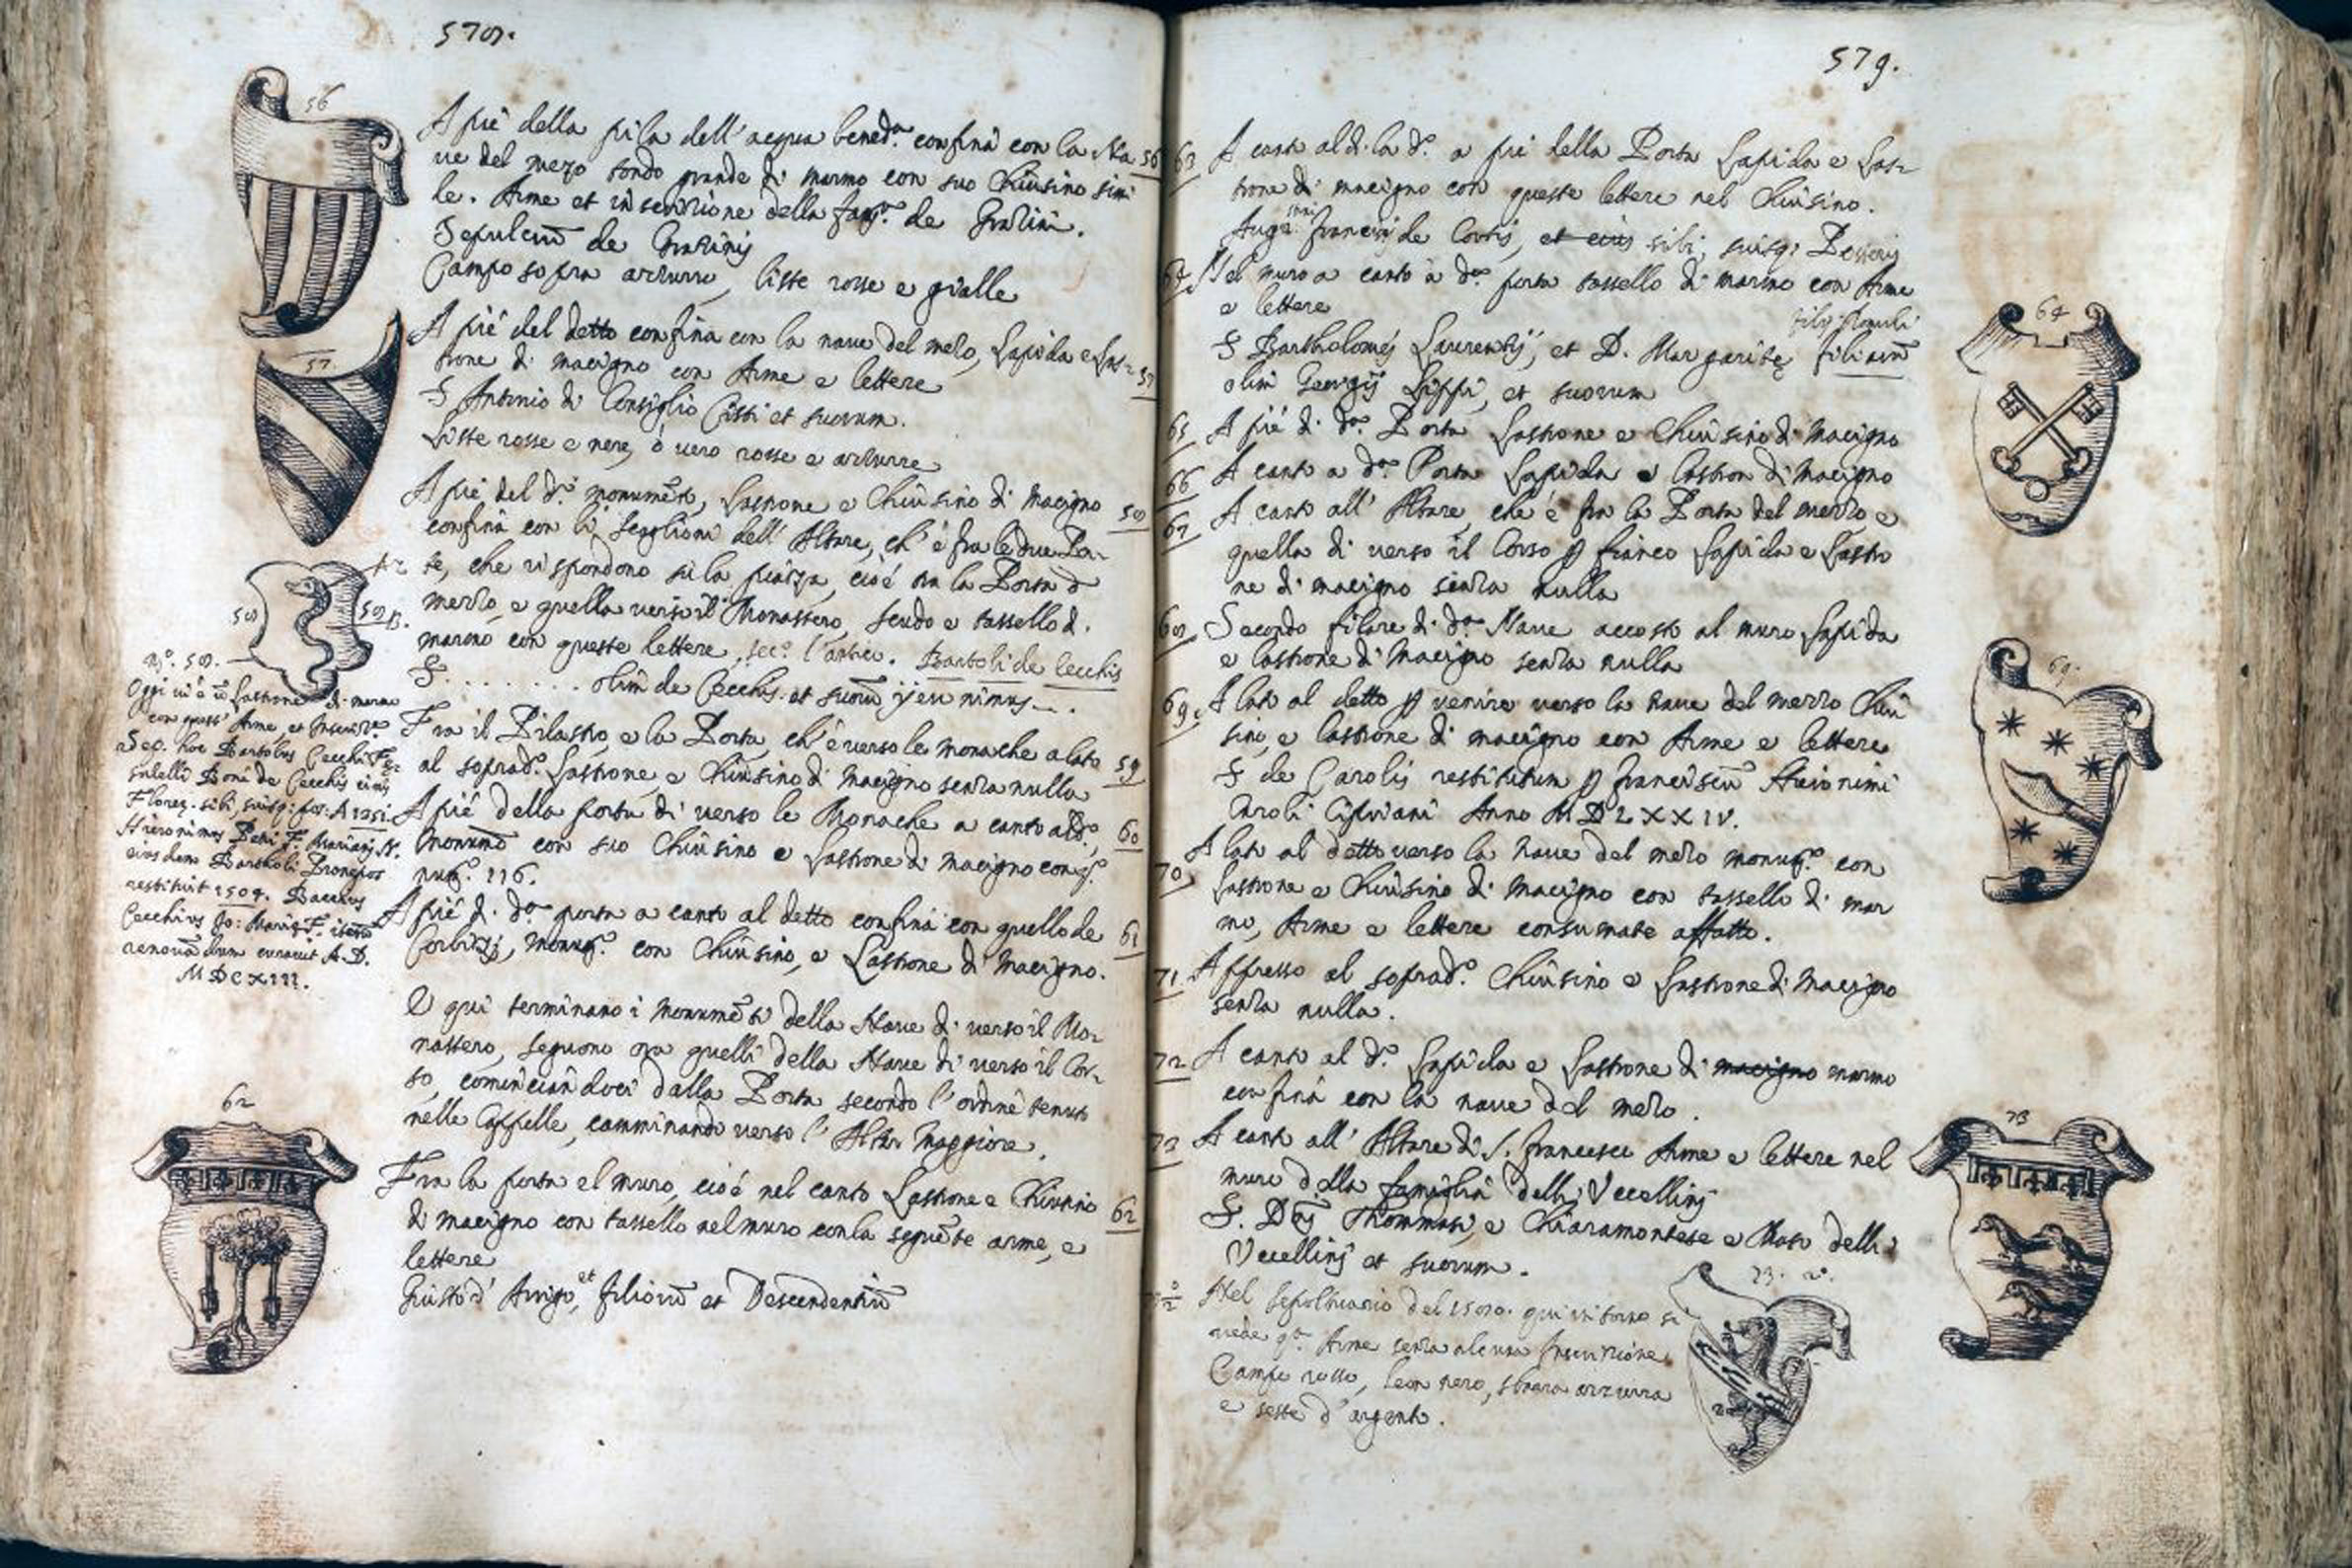 578.
56
A piè della pila dell'acqua bened.ª confina con la Na 56
ve del mezo tondo grande di marmo con suo Chiusino simi
le. Arme et inscrizione della fam.ª de
Sepulcrū de
Campo sopra azzurro, liste rosse e gialle
57.
A piè del detto confina con la nave del mezo, Lapida e Las- 57
trone di macigno con Arme e lettere
S Antonio di Consiglio Cisti et suorum.
Liste rosse e nere, ò vero rosse e azzurre
A piè del d.º monumēto, Lastrone e Chiusino di Macigno 58
confina con li scaglioni dell'Altare, ch'è fra le due Por-
te, che rispondono su la piazza, cioè tra la Porta d
mezzo, e quella verso il Monastero, scudo e tassello di
marmo con queste lettere, sec.º l'antico. Bartoli de Cecchis
S . . . . . . . olim de Cecchis et suorū
58
58 B.
N.º 58.
Oggi vi è ū Lastrone di marmo
con quest'Arme et Inscriz.ᵉ
Sep. hoc Bartolus Cecchi
Boni de Cecchis civis
Floren. sibi, suisq: pos: A
Hieronimus Petri F. Mariani N.
eiusdem Bartholi Pronepos
restituit 1504. Baccius
Cecchius Jo: Mariæ F. iterū
renovādum curavit A. D.
MDCXIII.
Fra il Pilastro, e la Porta, ch'è verso le monache a lato 59
al soprad.º Lastrone, e Chiusino di Macigno senza nulla
A piè della porta di verso le Monache a canto al d.º, 60
Monumō con suo Chiusino e Lastrone di macigno con q.º
num.º 116.
A piè di d.ª porta a canto al detto confina con quello de 61
Corbizi, monum.º con Chiusino, e Lastrone di Macigno.
E qui terminano i Monumēti della Nave di verso il Mo-
nastero, seguono ora quelli della Nave di verso il Cor-
so, cominciandoci dalla Porta secondo l'ordine tenuto
nelle Cappelle, camminando verso l'Altar Maggiore.
62
Fra la porta e'l muro, cioè nel canto Lastrone e Chiusino 62
di macigno con tassello nel muro con la seguēte arme, e
lettere
Giusto d'Arrigo, et filiorū et Descendentiū
579.
63 A canto al di là d.º a piè della Porta Lapida e Las-
trone di macigno con queste lettere nel Chiusino.
de Cortis, et eius sibi, suisq:
64. Nel muro a canto à d.ª porta tassello di marmo con Arme
e lettere
filij Pauli
S Bartholomej Laurentij, et D. Margaritę filiarū
olim Georgij Lippi, et suorum
64
65 A piè di d.ª Porta Lastrone e Chiusino di Macigno
66 A canto a d.ª Porta Lapida e Lastron di Macigno
67 A canto all'Altare, che è fra la Porta del mezzo e
quella di verso il Corso p fianco Lapida e Lastro
ne di macigno senza nulla
68 Secondo filare di d.ª Nave accosto al muro Lapida
e lastrone di Macigno senza nulla
69. A lato al detto p venire verso la nave del mezzo Chiu
sino, e lastrone di macigno con Arme e lettere
S de Carolis restitutum p Franciscū Hieronimi
Caroli Cipriani Anno MDLXXIV.
69.
70 A lato al detto verso la nave del mezo monum.º con
Lastrone e Chiusino di Macigno con tassello di mar
mo, Arme e lettere consumate affatto.
71 Appresso al soprad.º Chiusino e Lastrone di Macigno
senza nulla.
72 A canto al d.º Lapida e Lastrone di macigno marmo
confina con la nave del mezo.
73 A canto all'Altare di S. Francesco Arme e lettere nel
muro della famiglia delli Vccellini
S. Dñi Thommasi, e Chiaramontese e Maso delli
Vccellini et suorum.
73
73. 2º.
Nel sepoltuario del 1580. quivi intorno si
vede q.ª Arme senza alcuna Inscrizione
Campo rosso, leon nero, sbarra azzurra
e teste d'argento.